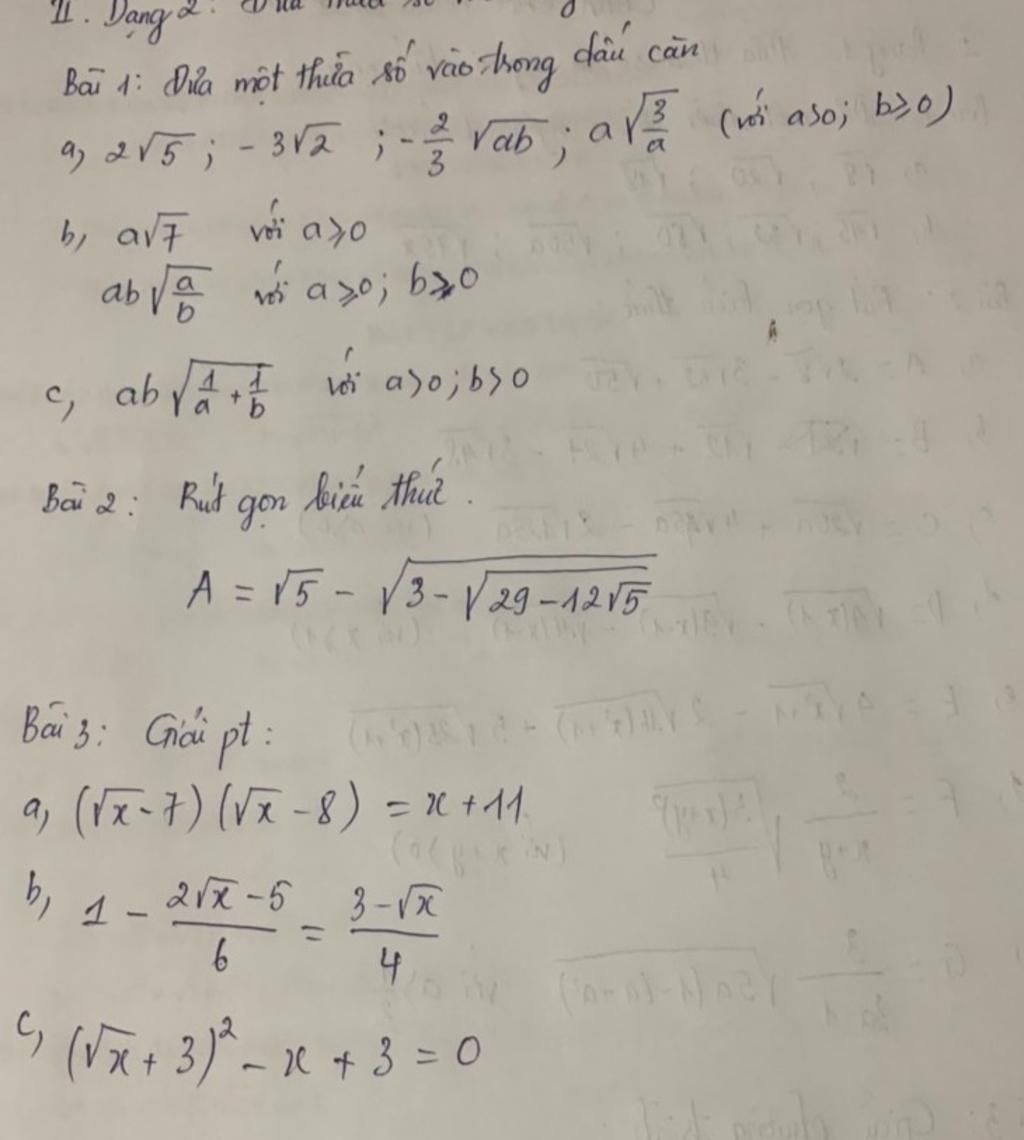 II. Dạng 2: Đưa thừa số
Bài 1: Đưa một thừa số vào trong dấu căn
a, 2√5 ; - 3√2 ; -2/3 √ab ; a√(3/a) (với a>0; b≥0)
b, a√7 với a≥0
ab√(a/b) với a≥0; b≥0
c, ab√(1/a + 1/b) với a>0; b>0
Bài 2: Rút gọn biểu thức.
A = √5 - √(3 - √(29 - 12√5))
Bài 3: Giải pt:
a, (√x - 7)(√x - 8) = x + 11
b, 1 - (2√x - 5)/6 = (3 - √x)/4
c, (√x + 3)² - x + 3 = 0